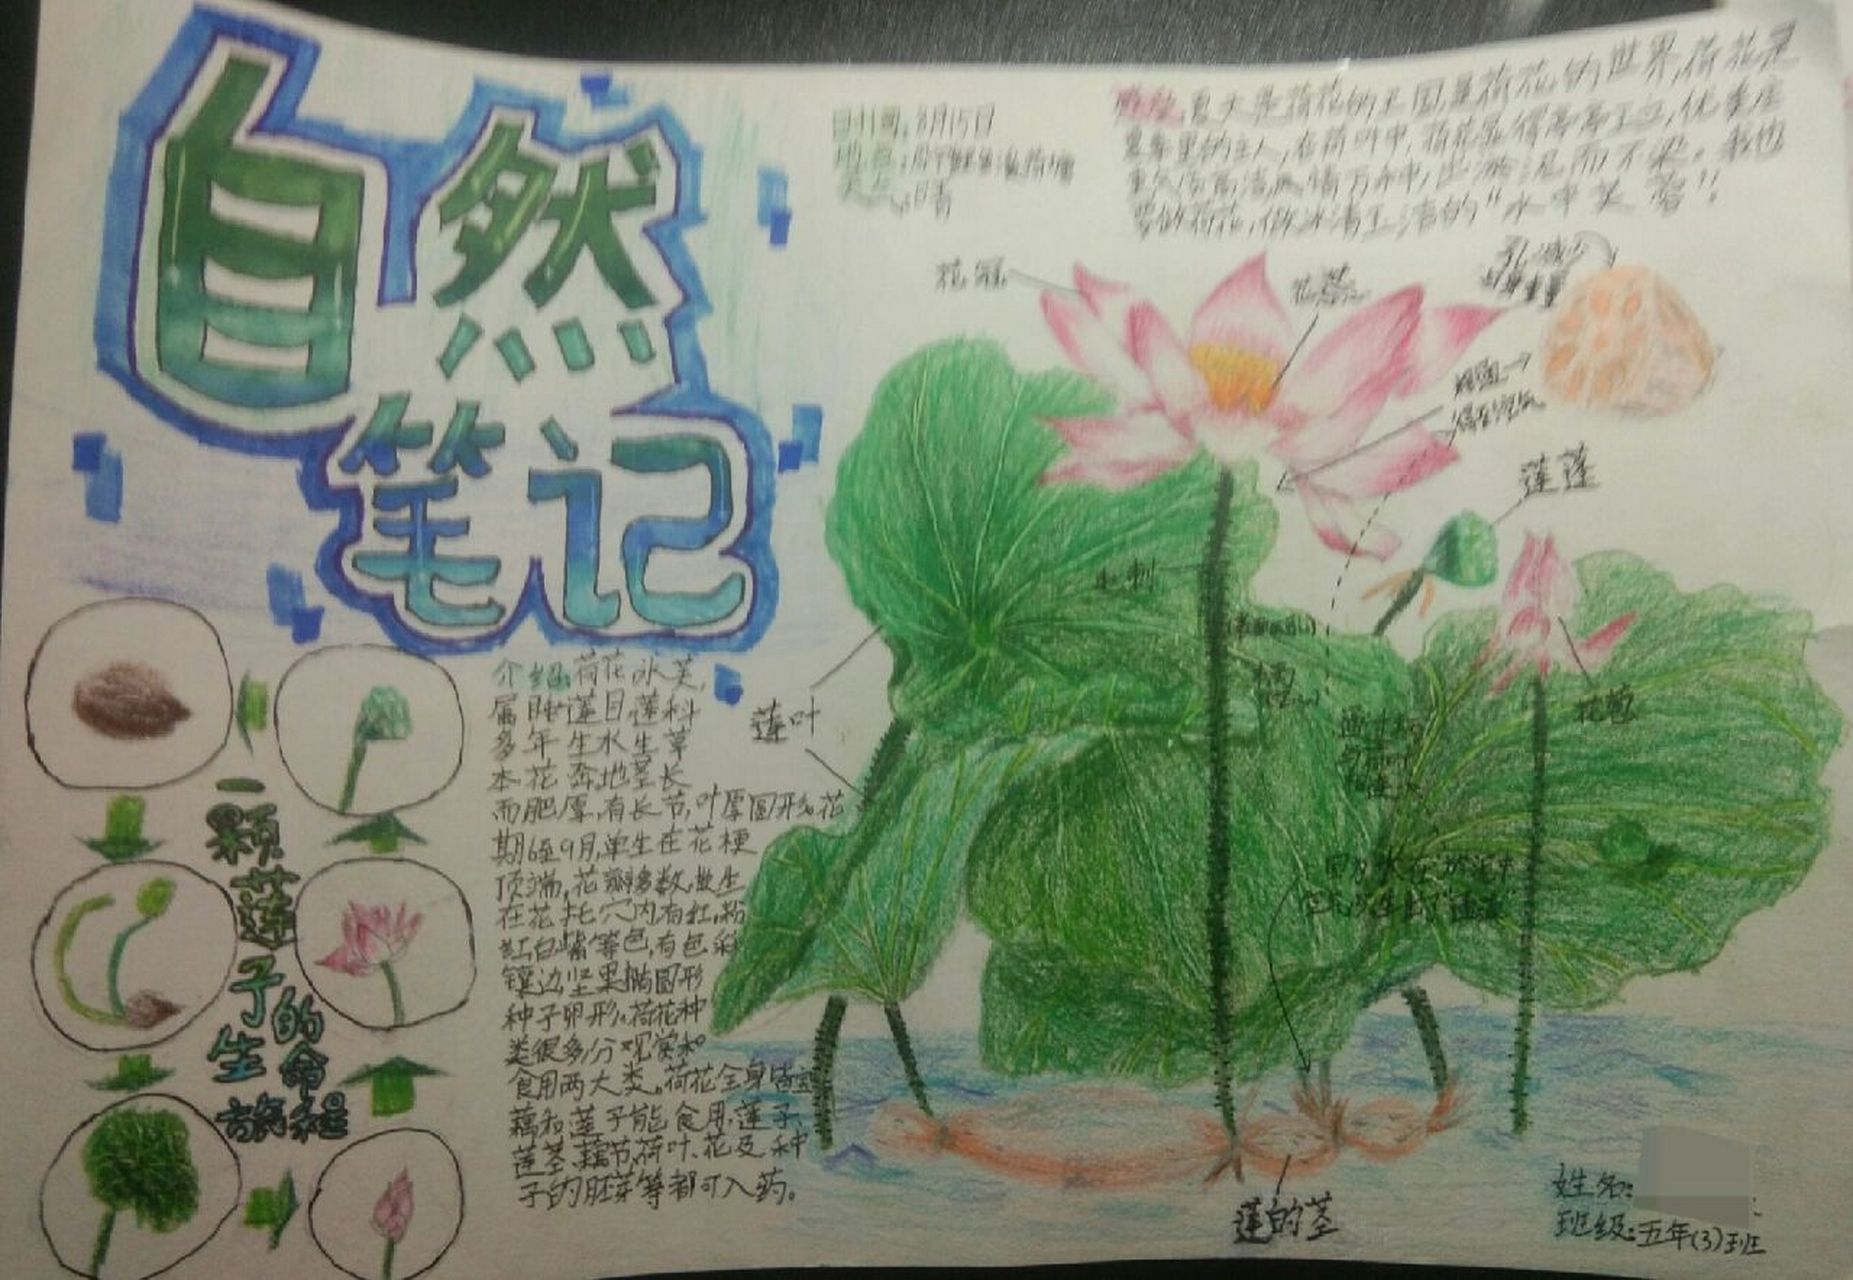 自然
笔记
时间:8月15日
天气:晴
感想:夏天是荷花的王国,是荷花的世界,荷花是
夏季里的主人,在荷叶中,荷花显得亭亭玉立,优美庄
重又清高洁,风情万种,出淤泥而不染。我也
要做荷花,做冰清玉洁的“水中芙蓉”!
花冠
花蕊
莲蓬
莲叶
花苞
莲的茎
介绍:荷花 水芙,
属睡莲目,莲科
多年生水生草
本花卉,地茎长
而肥厚,有长节,叶厚圆形。花
期6至9月,单生在花梗
顶端,花瓣多数,散生
在花托穴内,有红,粉
红白紫等色,有色彩
镶边,坚果椭圆形
种子卵形。荷花种
类很多,分观赏和
食用两大类。荷花全身皆宝
藕和莲子能食用,莲子、
莲茎、藕节、荷叶、花及种
子的胚芽等都可入药。
一颗莲子的生命旅程
姓名:
班级:五年(3)班